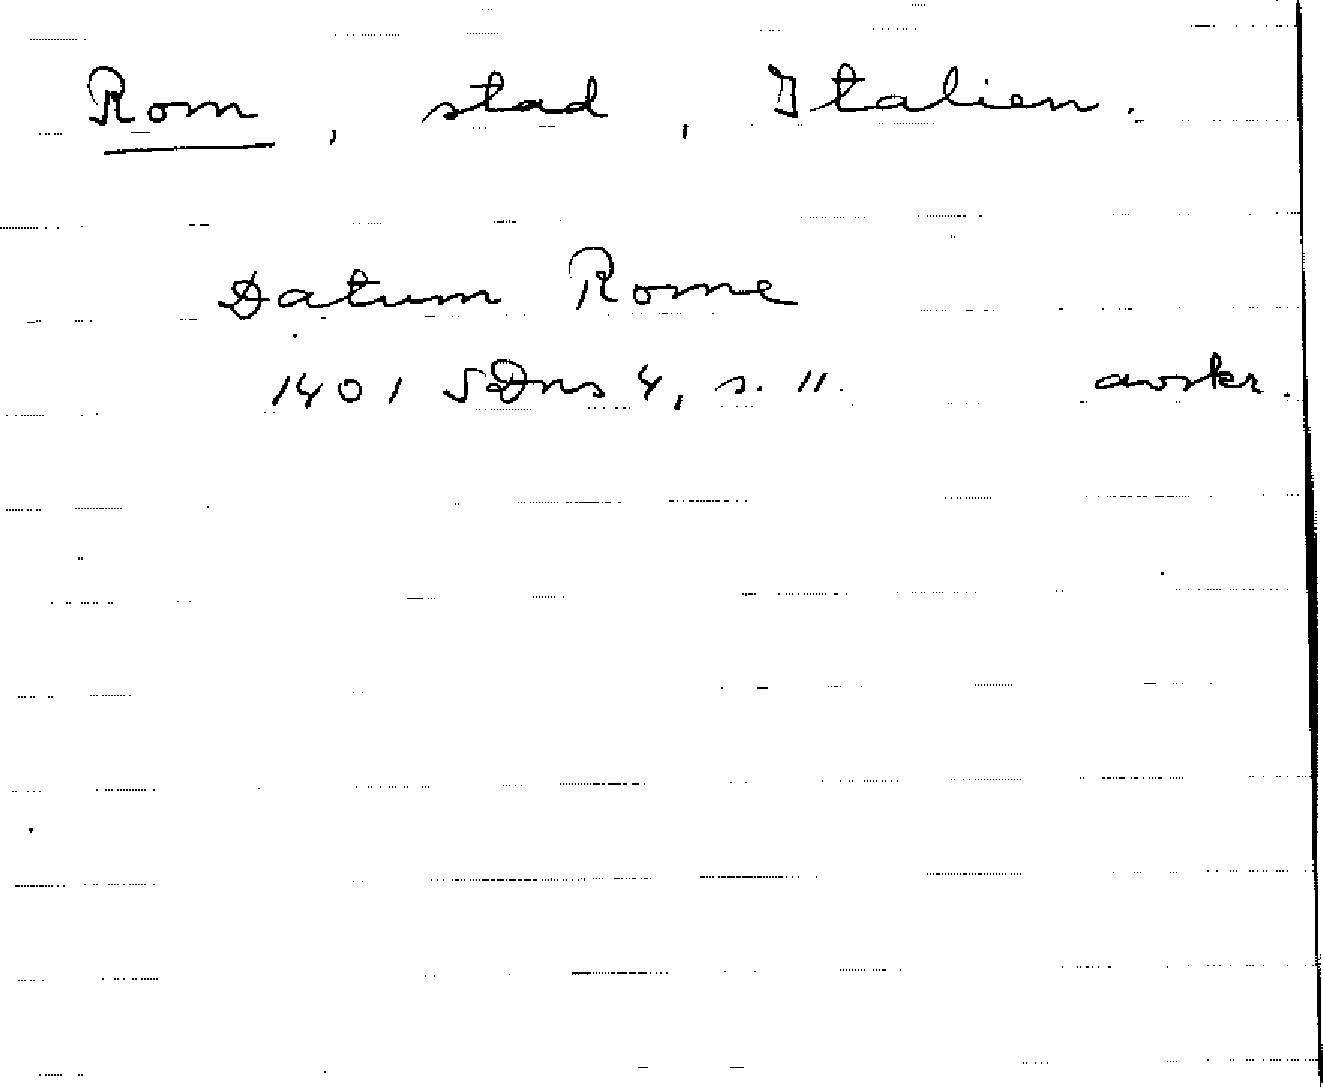 Rom, stad, Italien.
Datum Rome
1401 SDns 4, s. 11. avskr.